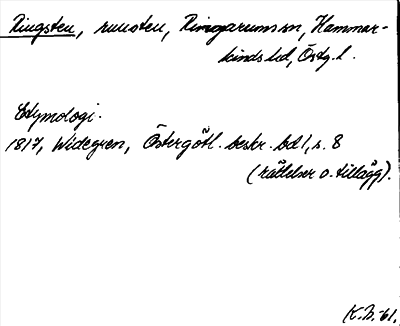 Ringsten, runsten, Ringarums sn, Hammar-
kinds hd, Östg. l.
Etymologi.
1817, Widegren, Östergötl. beskr. bd 1, s. 8
(rättelser o. tillägg).
K.B. -61.